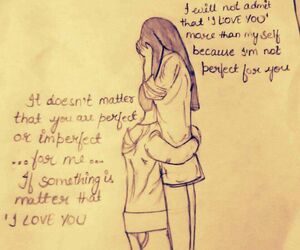 I will not admit
that 'I LOVE YOU'
more than my self
because I'm not
perfect for you
It doesn't matter
that you are perfect
or imperfect
...for me...
If something is
matter that
'I LOVE YOU